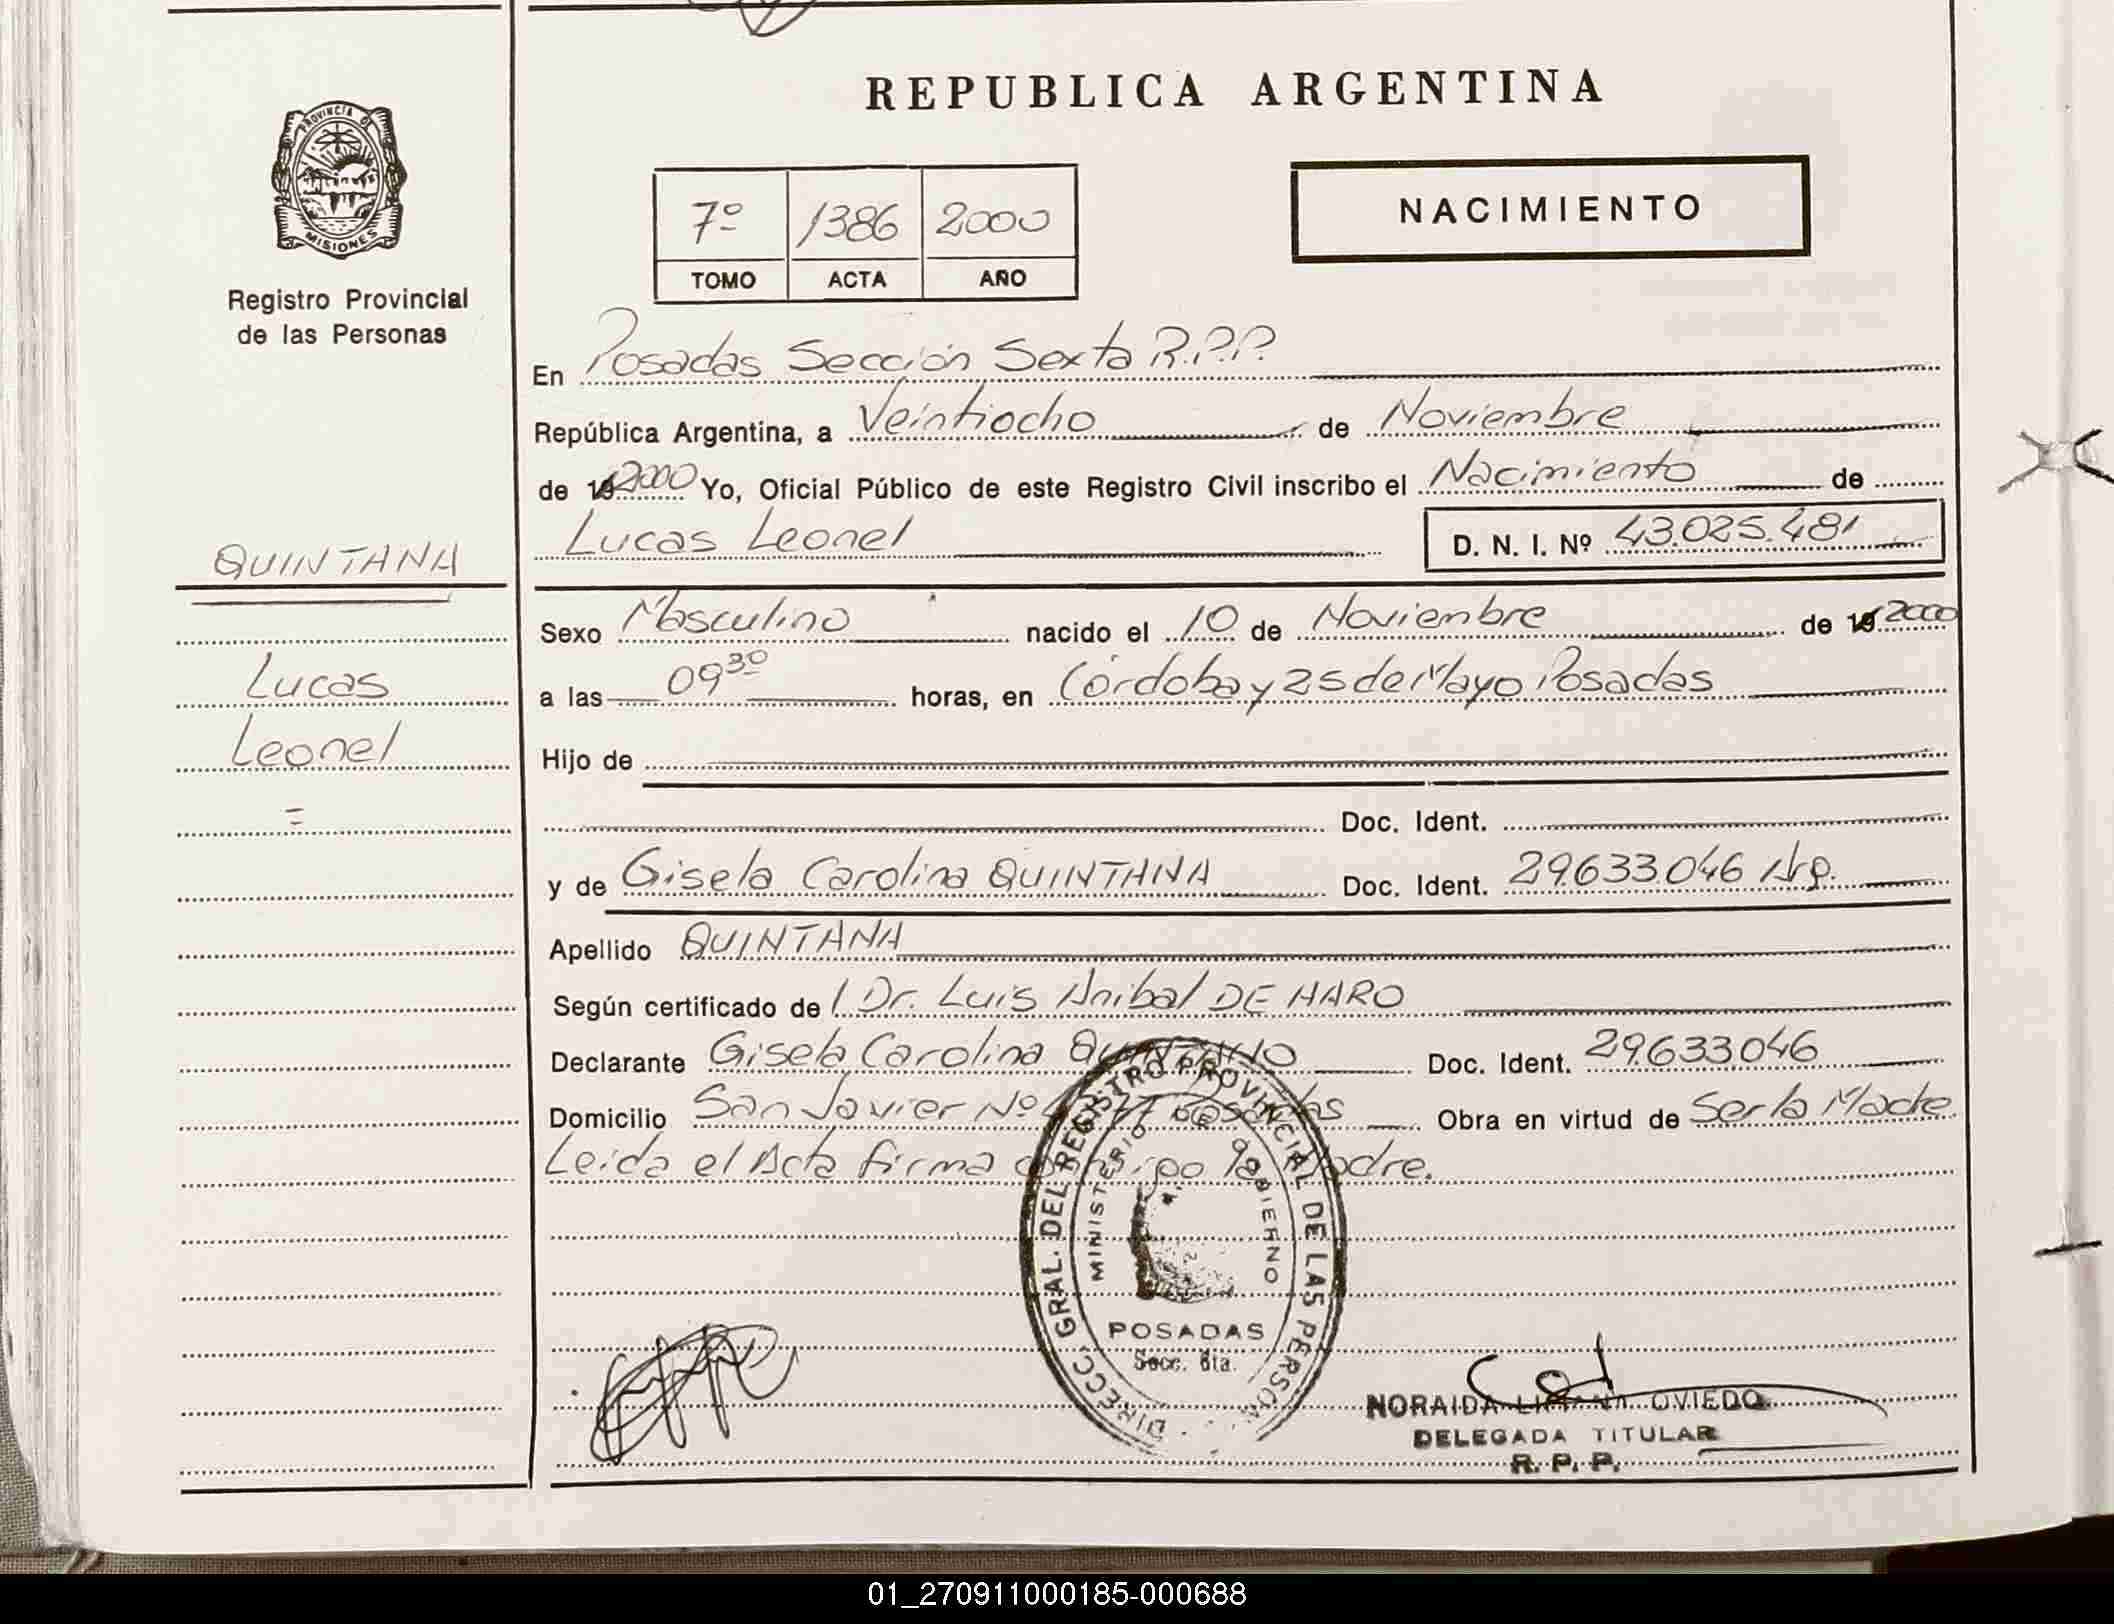 REPUBLICA ARGENTINA
PROVINCIA D
MISIONES
Registro Provincial
de las Personas
7º 1386 2000
TOMO ACTA AÑO
NACIMIENTO
En Posadas Sección Sexta R.P.P
República Argentina, a Veintiocho de Noviembre
de 19 2000 Yo, Oficial Público de este Registro Civil inscribo el Nacimiento de
Lucas Leonel D. N. I. Nº 43.025.481
QUINTANA
Lucas
Leonel
=
Sexo Masculino nacido el 10 de Noviembre de 19 2000
a las 09 30 horas, en Córdoba y 25 de Mayo Posadas
Hijo de
Doc. Ident.
y de Gisela Carolina QUINTANA Doc. Ident. 29.633.046 Arg.
Apellido QUINTANA
Según certificado de l Dr. Luis Anibal DE HARO
Declarante Gisela Carolina QUINTANA Doc. Ident. 29.633.046
Domicilio San Javier Nº Posadas Obra en virtud de Ser la Madre
Leida el Acta firma conmigo la Madre.
DIRECC. GRAL. DEL REGISTRO PROVINCIAL DE LAS PERSON
MINISTERIO DE GOBIERNO
POSADAS
Secc. 6ta.
NORAIDA OVIEDO
DELEGADA TITULAR
R. P. P.
01_270911000185-000688